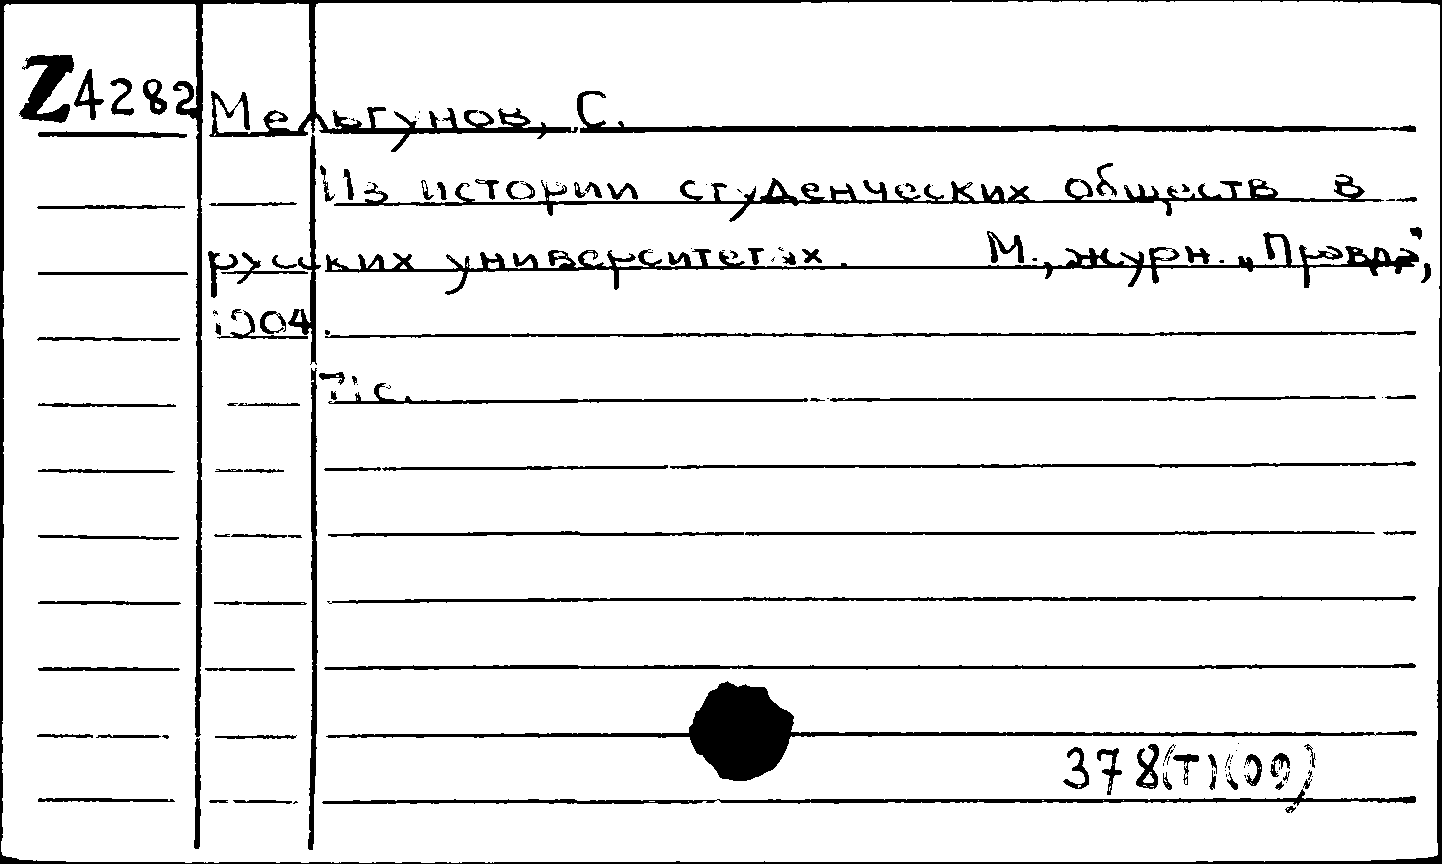 Z4282 Мельгунов, С.
Из истории студенческих обществ в
русских университетах. М., журн. „Правда",
1904.
71с.
378(T)(09)